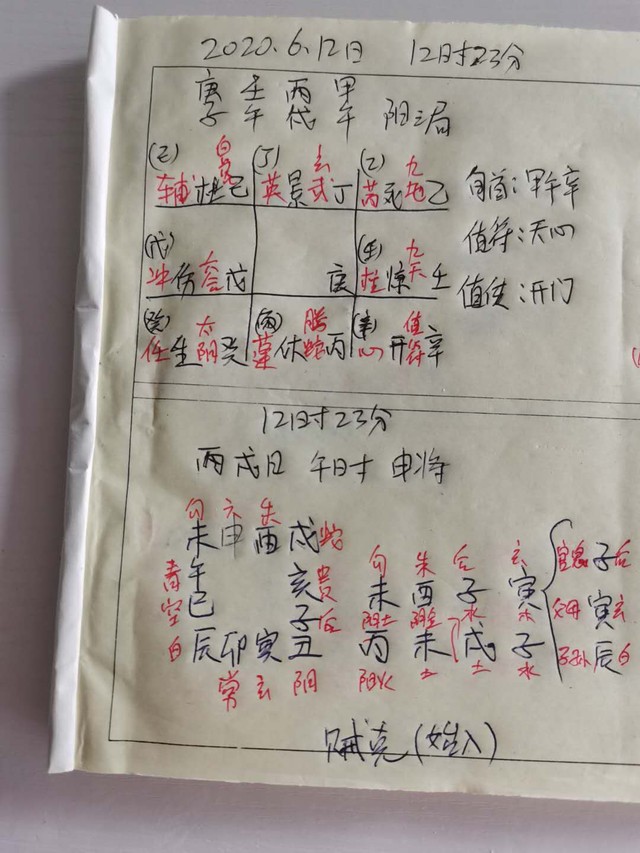 2020.6.12日 12时23分
庚 壬 丙 甲
子 午 戌 午 阳三局
(己) 白虎 (丁) 玄 (乙) 九
辅杜己 英景武丁 芮死地乙
旬首:甲午辛
值符:天心
值使:开门
(戊) 六 (壬) 九
冲伤合戊 庚 柱惊天壬
(癸) 太 (丙) 腾 (辛) 值
任生阴癸 蓬休蛇丙 心开符辛
12时23分
丙戌日 午时 申将
勾 六 朱
未 申 酉 戌 蛇
青 午 亥 贵
空 巳 子 后
白 辰 卯 寅 丑
常 玄 阴
勾 朱 后 玄
未 酉 子 寅
阴土 阴金 水 木
丙 未 戌 子
阳火 土 土 水
官鬼 子 后
父母 寅 玄
子孙 辰 白
贼克(始入)